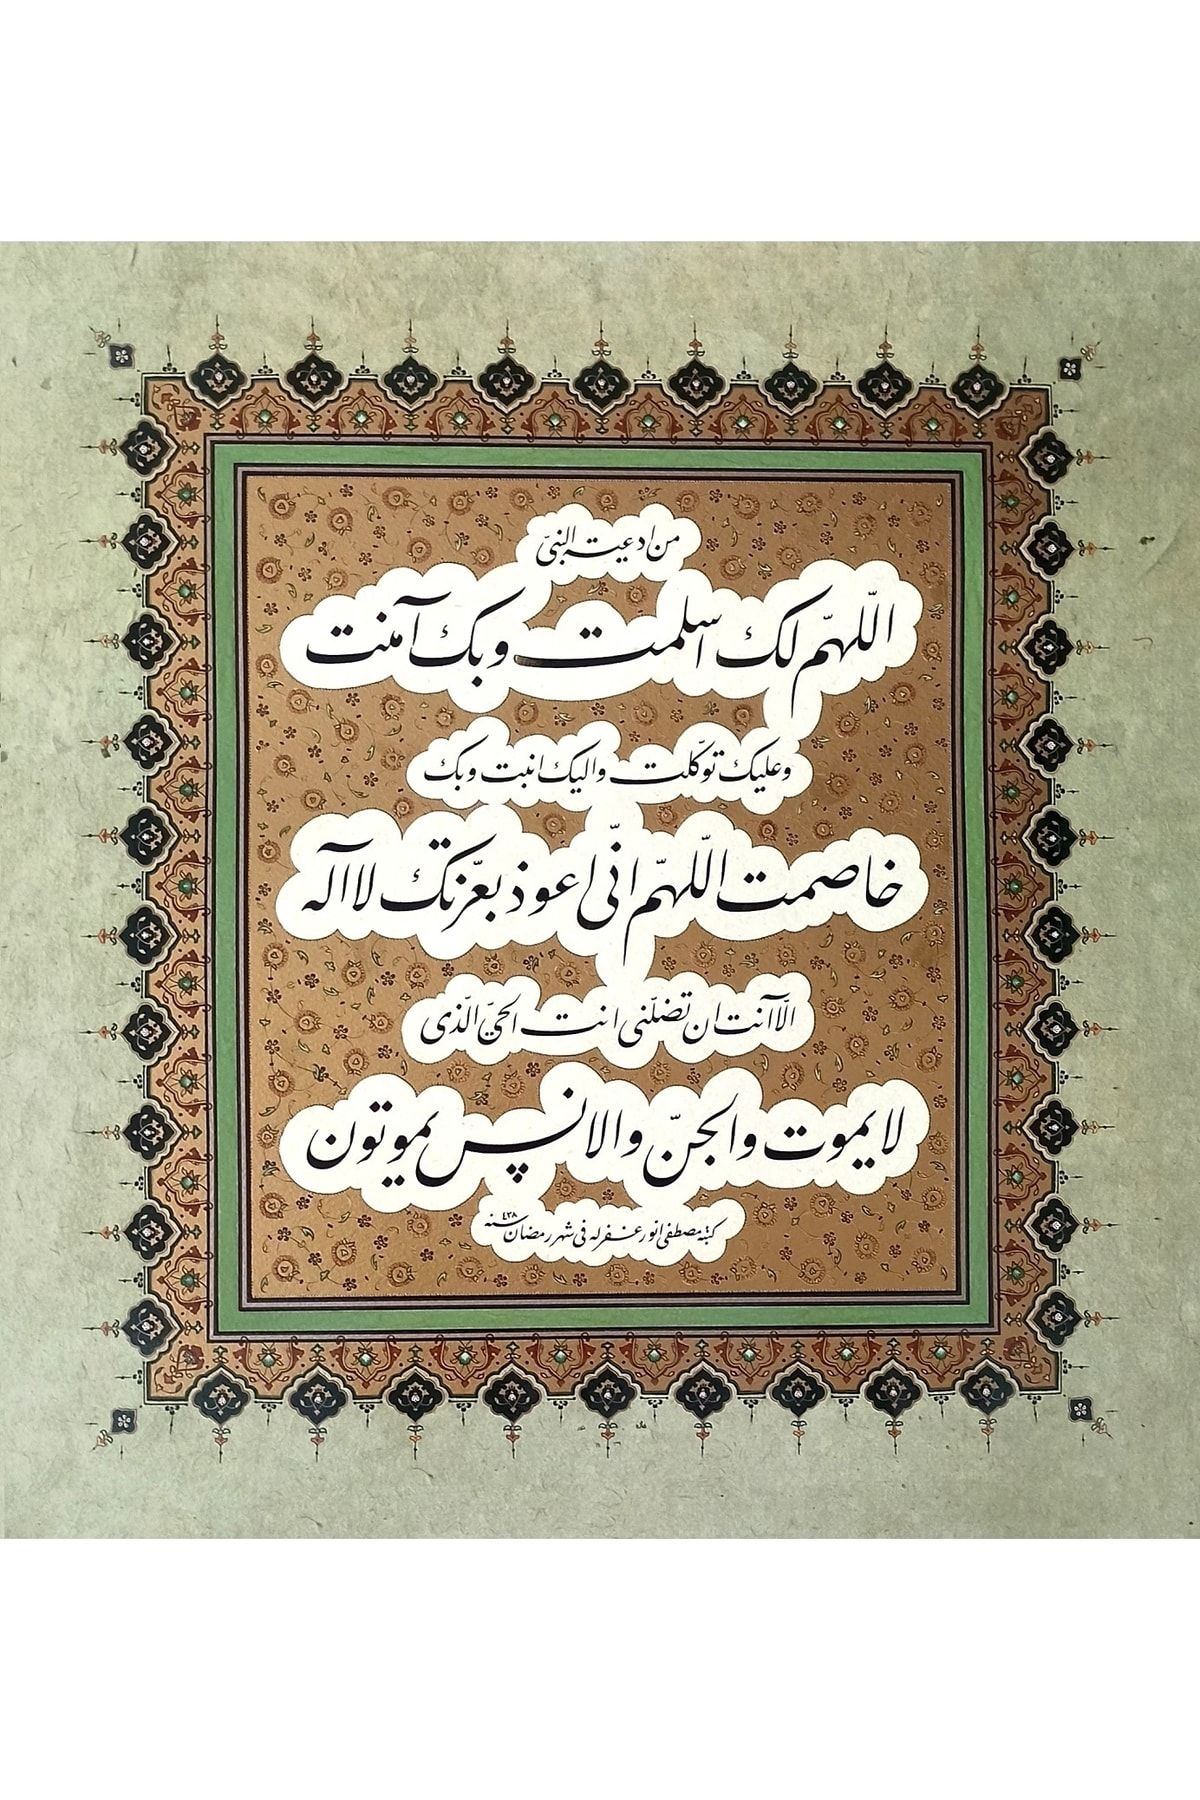 من ادعية النبىّ
اللّهمّ لك اسلمت وبك آمنت
وعليك توكّلت واليك انبت وبك
خاصمت اللّهمّ انّى اعوذ بعزّتك لا اله
الّا انت ان تضلّنى انت الحىّ الّذى
لا يموت والجنّ والانس يموتون
كتبه مصطفى انور غفر له فى شهر رمضان سنه